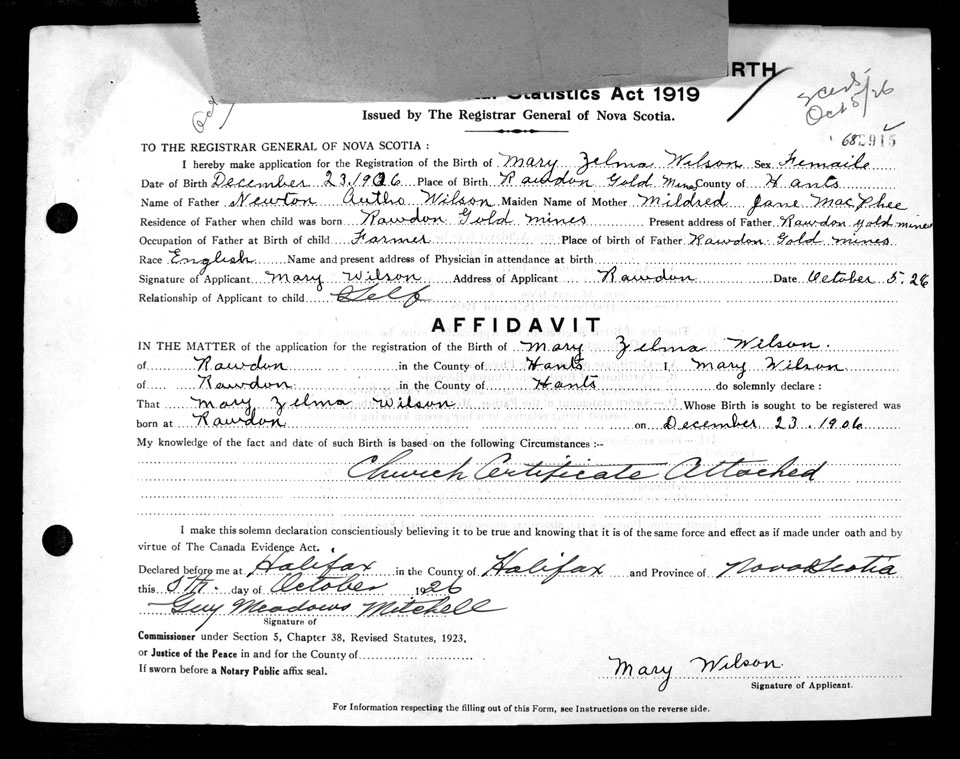 IRTH
Statistics Act 1919
Issued by The Registrar General of Nova Scotia.
Oct 5/26
68 2915
TO THE REGISTRAR GENERAL OF NOVA SCOTIA :
I hereby make application for the Registration of the Birth of Mary Zelma Wilson Sex Femaile
Date of Birth December 23.1906 Place of Birth Rawdon Gold Mines County of Hants
Name of Father Newton Wilson Maiden Name of Mother Mildred Jane MacPhee
Residence of Father when child was born Rawdon Gold mines Present address of Father Rawdon gold mines
Occupation of Father at Birth of child Farmer Place of birth of Father Rawdon Gold mines
Race English Name and present address of Physician in attendance at birth
Signature of Applicant Mary Wilson Address of Applicant Rawdon Date October 5.26
Relationship of Applicant to child Self
AFFIDAVIT
IN THE MATTER of the application for the registration of the Birth of Mary Zelma Wilson.
of Rawdon in the County of Hants I, Mary Wilson
of Rawdon in the County of Hants do solemnly declare :
That Mary Zelma Wilson Whose Birth is sought to be registered was
born at Rawdon on December 23.1906
My knowledge of the fact and date of such Birth is based on the following Circumstances :--
Church Certificate Attached
I make this solemn declaration conscientiously believing it to be true and knowing that it is of the same force and effect as if made under oath and by
virtue of The Canada Evidence Act.
Declared before me at Halifax in the County of Halifax and Province of Nova Scotia
this 5th. day of October 1926
Guy Meadows Mitchell
Signature of
Commissioner under Section 5, Chapter 38, Revised Statutes, 1923,
or Justice of the Peace in and for the County of
If sworn before a Notary Public affix seal.
Mary Wilson
Signature of Applicant.
For Information respecting the filling out of this Form, see Instructions on the reverse side.